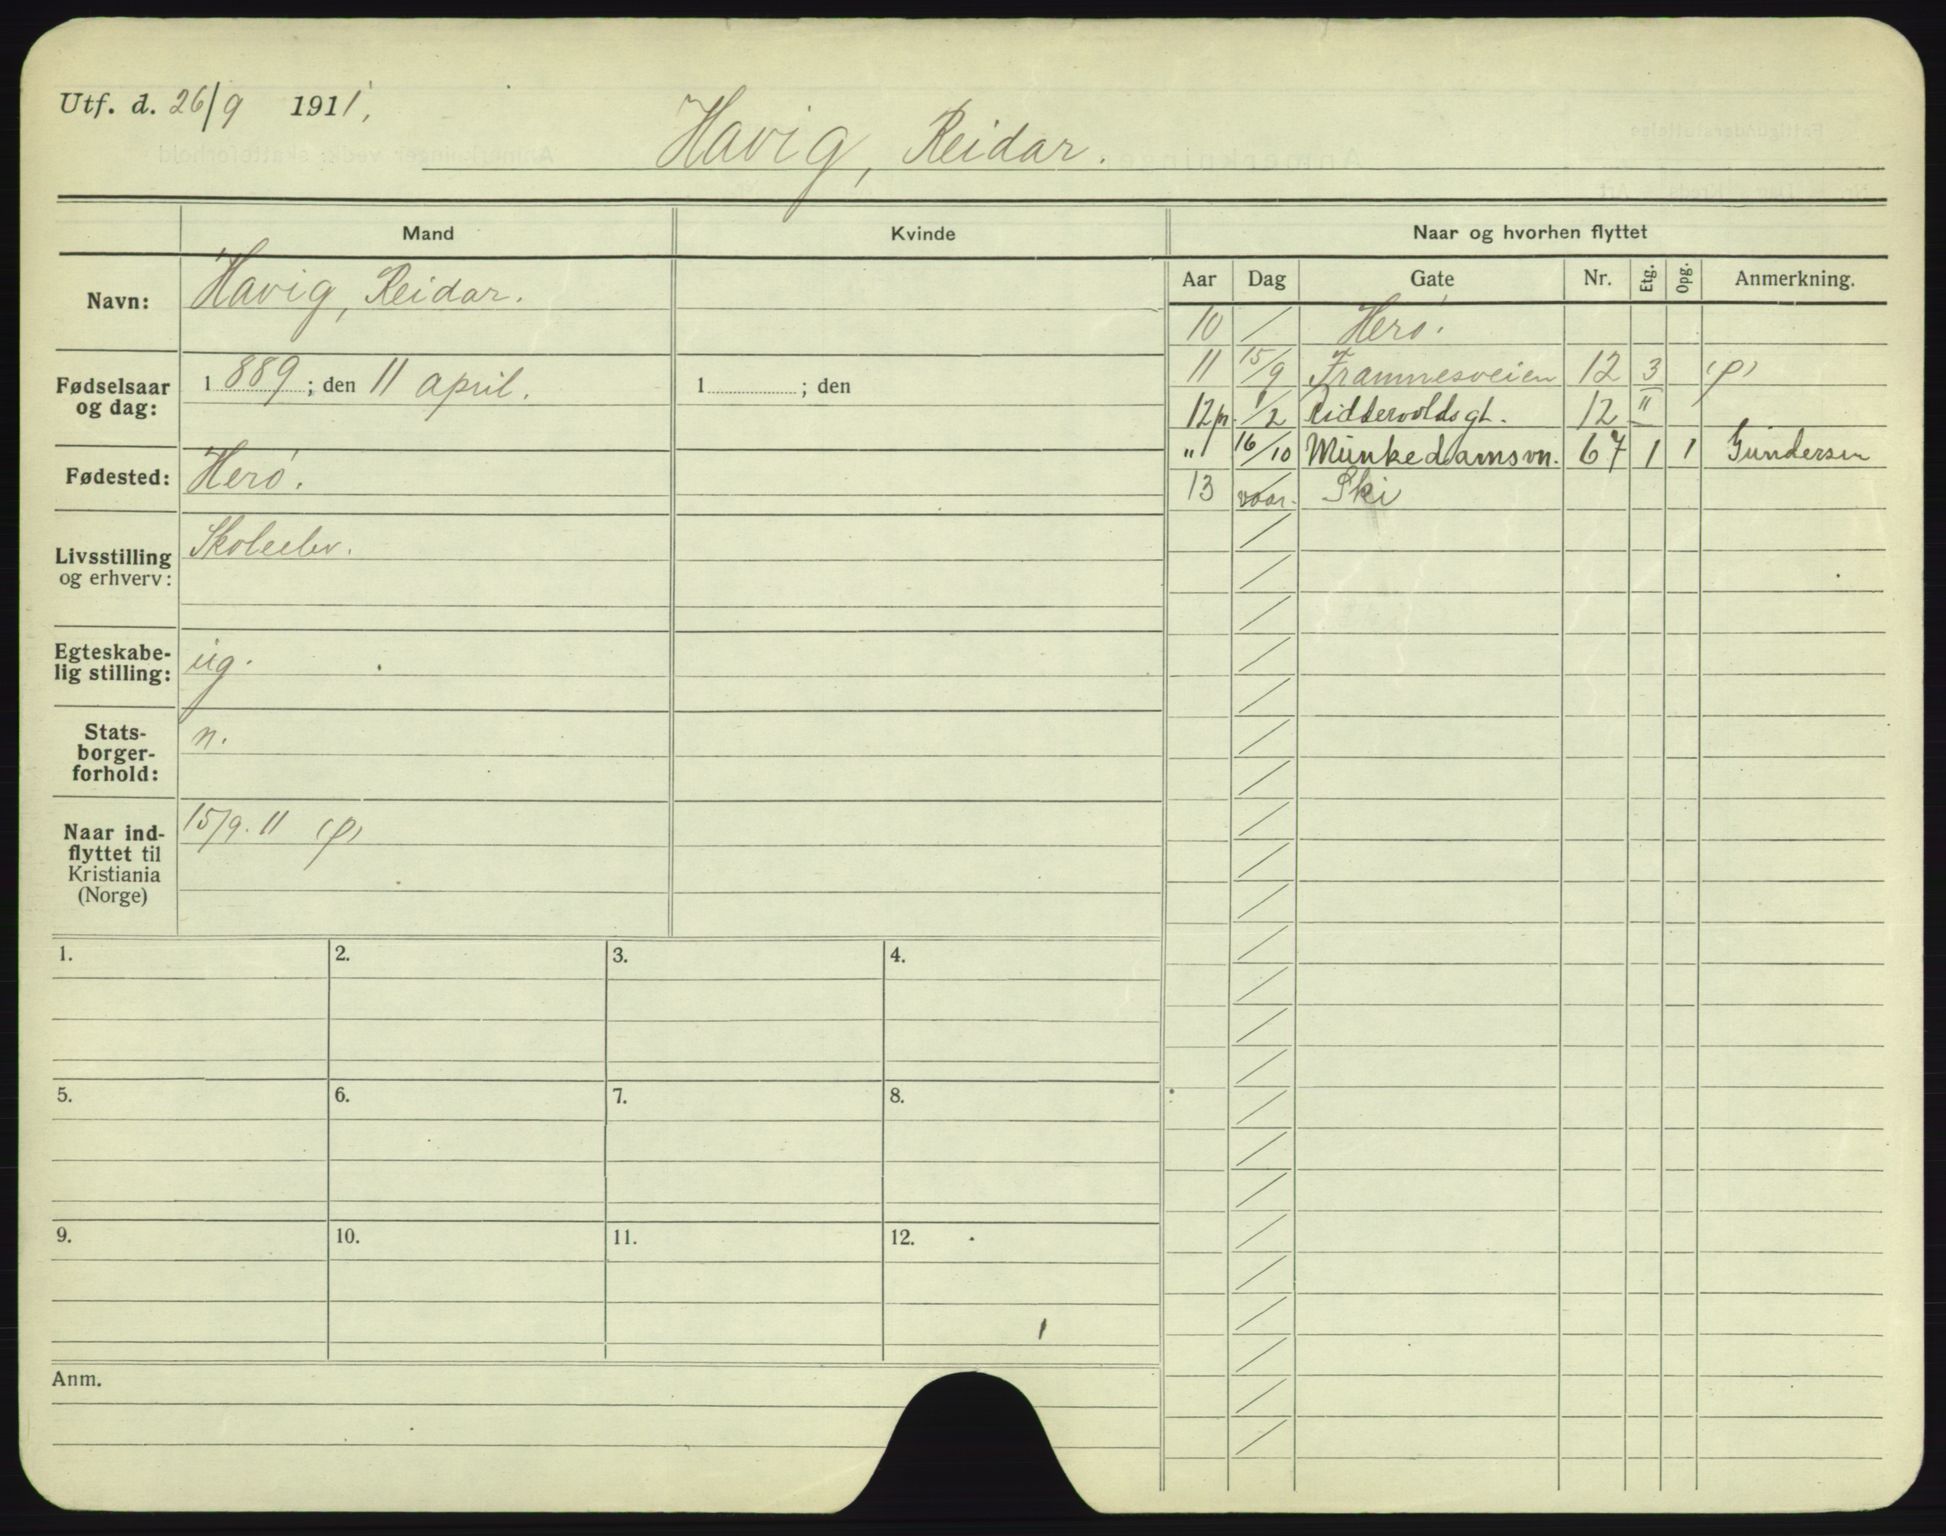 Utf. d. 26/9 1911,
Havig, Reidar.
Mand
Kvinde
Naar og hvorhen flyttet
Navn: Havig, Reidar.
Fødselsaar og dag: 1889; den 11 april. 1 ; den
Fødested: Herö.
Livsstilling og erhverv: Skoleelev.
Egteskabe-
lig stilling: ug.
Stats-
borger-
forhold: n.
Naar ind-
flyttet til
Kristiania
(Norge) 15/9. 11 (p)
Aar Dag Gate Nr. Etg. Opg. Anmerkning.
10 / Herö.
11 15/9 Framnesveien 12 3 (p)
12 pr. 1/2 Riddervoldsgt. 12 "
" 16/10 Munkedamsvn. 67 1 1 Gundersen
13 vaar. Ski
1. 2. 3. 4.
5. 6. 7. 8.
9. 10. 11. 12.
Anm.